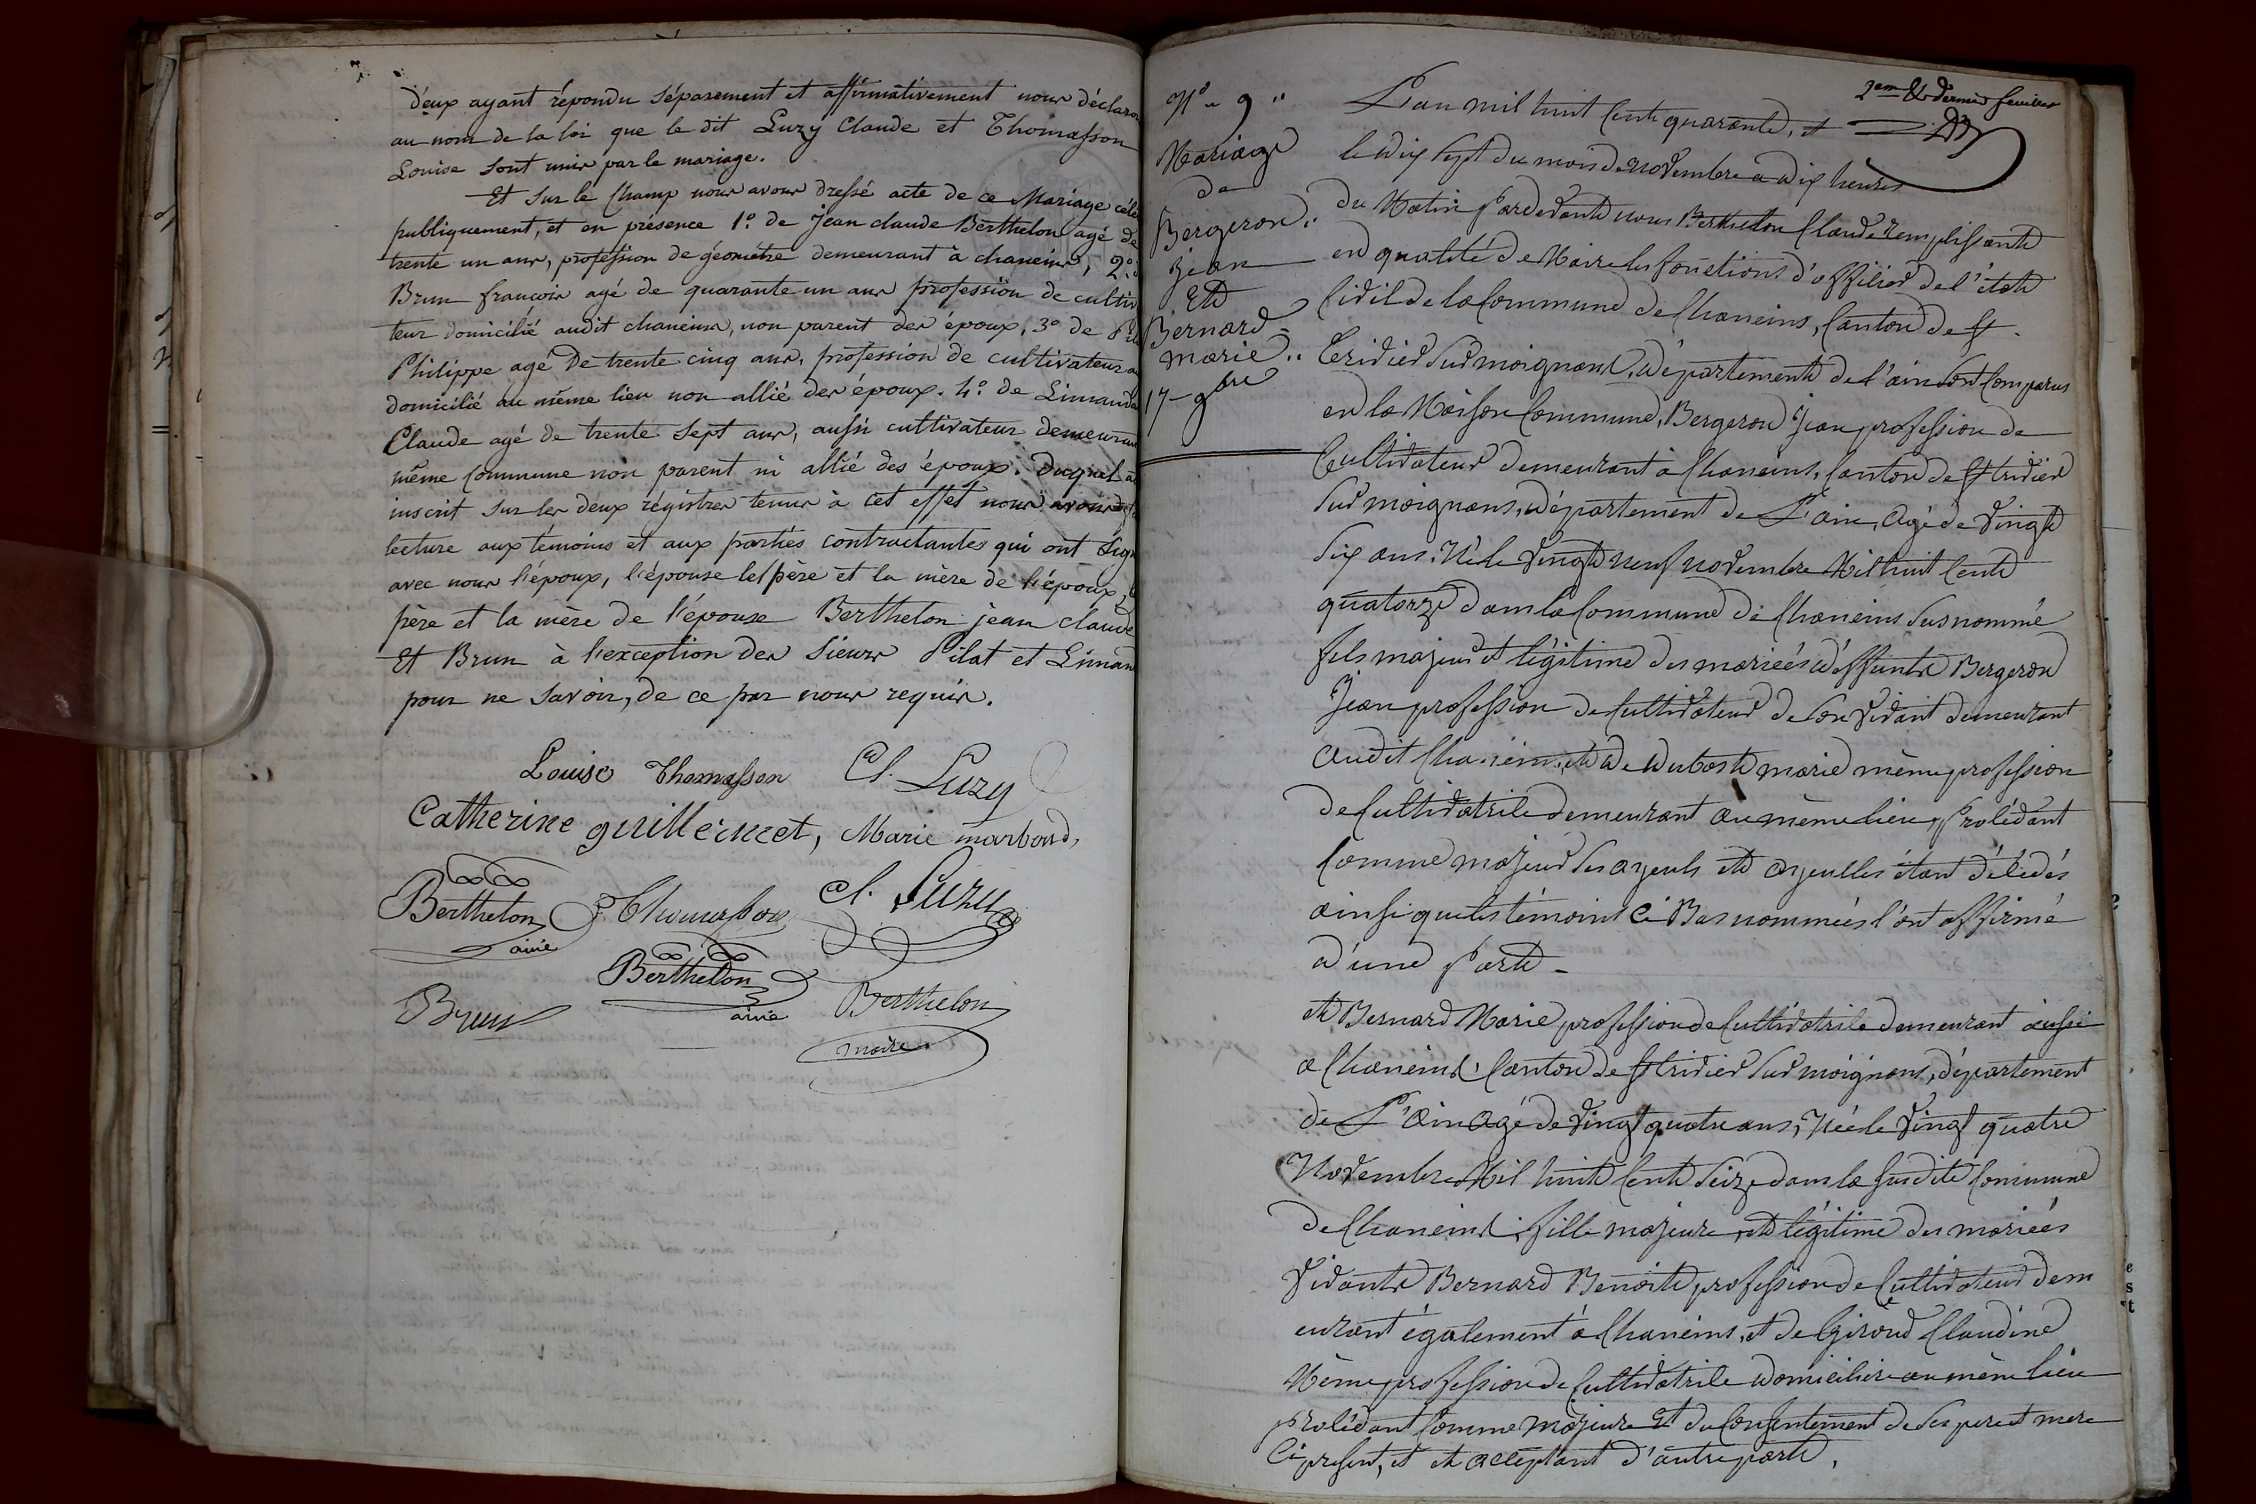 d'eux ayant répondu séparement et affirmativement nous déclaron
au nom de la loi que le dit Luzy Claude et Thomasson
Louise sont unis par le mariage.
Et sur le Champ nous avons dressé acte de ce Mariage célé
publiquement, et en présence 1.º de jean claude Berthelon agé de
trente un ans, profession de géomètre demeurant à chaneins, 2.º
Brun françois agé de quarante un ans profession de cultiv
teur domicilié audit chaneins, non parent des époux, 3º de Pil
Philippe agé De trente cinq ans, profession de cultivateur
domicilié au même lieu non allié des époux. 4.º de Linand
Claude agé de trente sept ans, aussi cultivateur demeurant
même Commune non parent ni allié des époux. Duquel a
inscrit sur les deux régistres tenus à cet effet nous avons
lecture aux témoins et aux parties contractantes qui ont Sig
avec nous l'époux, l'épouse le père et la mère de l'époux,
père et la mère de l'épouse Berthelon jean claude
Et Brun à l'exception des Sieurs Pilat et Linan
pour ne savoir, de ce par nous requis.
Louise Thomasson Cl. Luzy
Catherine guillemet, Marie marbond,
Berthelon Thomasson Cl. Luzy
ainé
Berthelon
ainé
Brun Berthelon
maire
2em & Dernier feuillet
Nº 9
Mariage
de
Bergeron
jean
Et
Bernard
marie
17 9bre
L'an mil huit Cent quarante, et
le dix sept du mois de novembre a dix heures
du Matin Pardevant nous Berthelon Claude remplissant
en qualité de Maire les fonctions d'officier de l'état
Civil de la Commune de Chaneins, Canton de St
Trivier sur moignans, département de l'ain sont Comparus
en la Maison Commune, Bergeron Jean profession de
Cultivateur demeurant à Chaneins, Canton de St trivier
sur moignans, département de L'ain, Agé de Vingt
six ans, Né le Vingt neuf novembre Mil huit Cent
quatorze dans la Commune de Chaneins susnommé
fils majeur et légitime des mariées déffunts Bergeron
Jean profession de Cultivateur de son Vivant demeurant
audit Chaneins, et de Dubost marie même profession
de Cultivatrice demeurant au même lieu, Procédant
Comme majeur ses ayeuls et ayeulles étant décédés
ainsi que les témoins Ci Bas nommées l'ont affirmé
d'une Part.
et Bernard Marie, profession de Cultivatrice demeurant aussi
a Chaneins, Canton de St trivier sur moignans, département
de L'ain Agé de Vingt quatre ans, Née le Vingt quatre
Novembre Mil huit Cent seize dans la susdite Commune
de Chaneins, fille majeure et légitime des mariées
Vivants Bernard Benoit profession de Cultivateur dem
eurant également à Chaneins, et de Giroud Claudine
Même profession de Cultivatrice domiciliée au même lieu
procédant Comme majeure Et du Consentement de ses pere et mere
Ci present, et et acceptant d'autre part,